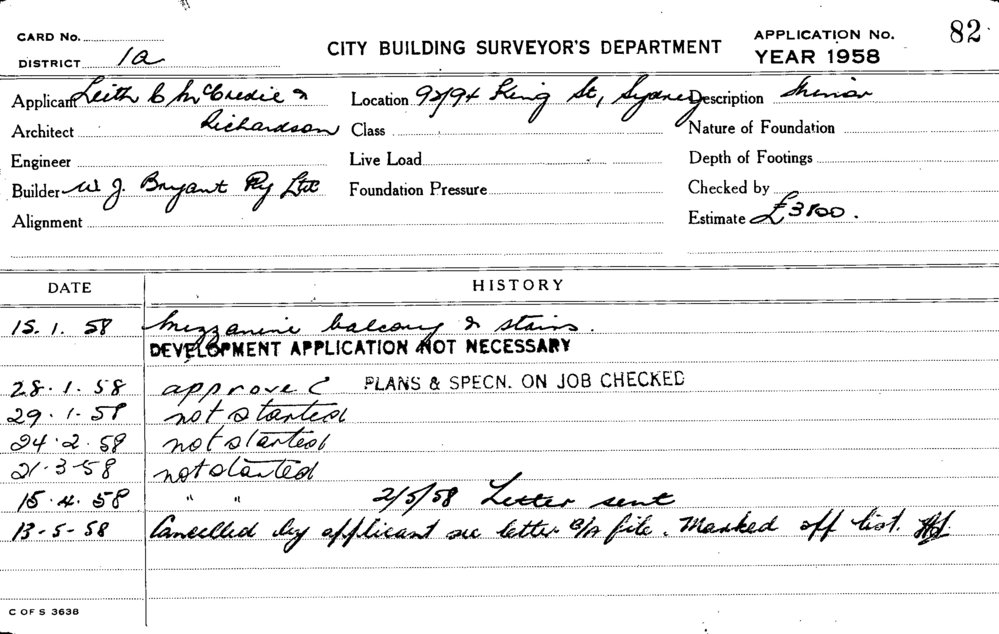 CARD No.
DISTRICT 1a
CITY BUILDING SURVEYOR'S DEPARTMENT
APPLICATION No. 82
YEAR 1958
Applicant Leith C McCredie &
Location 92/94 King St, Sydney
Description Minor
Architect Richardson
Class
Nature of Foundation
Engineer
Live Load
Depth of Footings
Builder W J. Bryant Pty Ltd
Foundation Pressure
Checked by
Alignment
Estimate £3800.
DATE HISTORY
15.1.58 Mezzanine balcony & stairs.
DEVELOPMENT APPLICATION NOT NECESSARY
28.1.58 approve C PLANS & SPECN. ON JOB CHECKED
29.1.58 not started
24.2.58 not started
21.3.58 not started
15.4.58 " " 2/5/58 Letter sent
13-5-58 Cancelled by applicant see letter file. Marked off list.
C OF S 3638